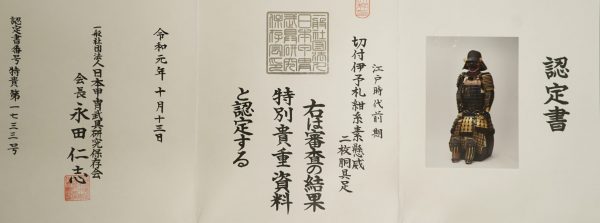 認定書
江戸時代前期
切付伊予札紺糸素懸威
二枚胴具足
右は審査の結果
特別貴重資料
と認定する
令和元年十月十三日
一般社団法人日本甲冑武具研究保存会
会長 永田仁志
認定書番号特貴第一七三三号